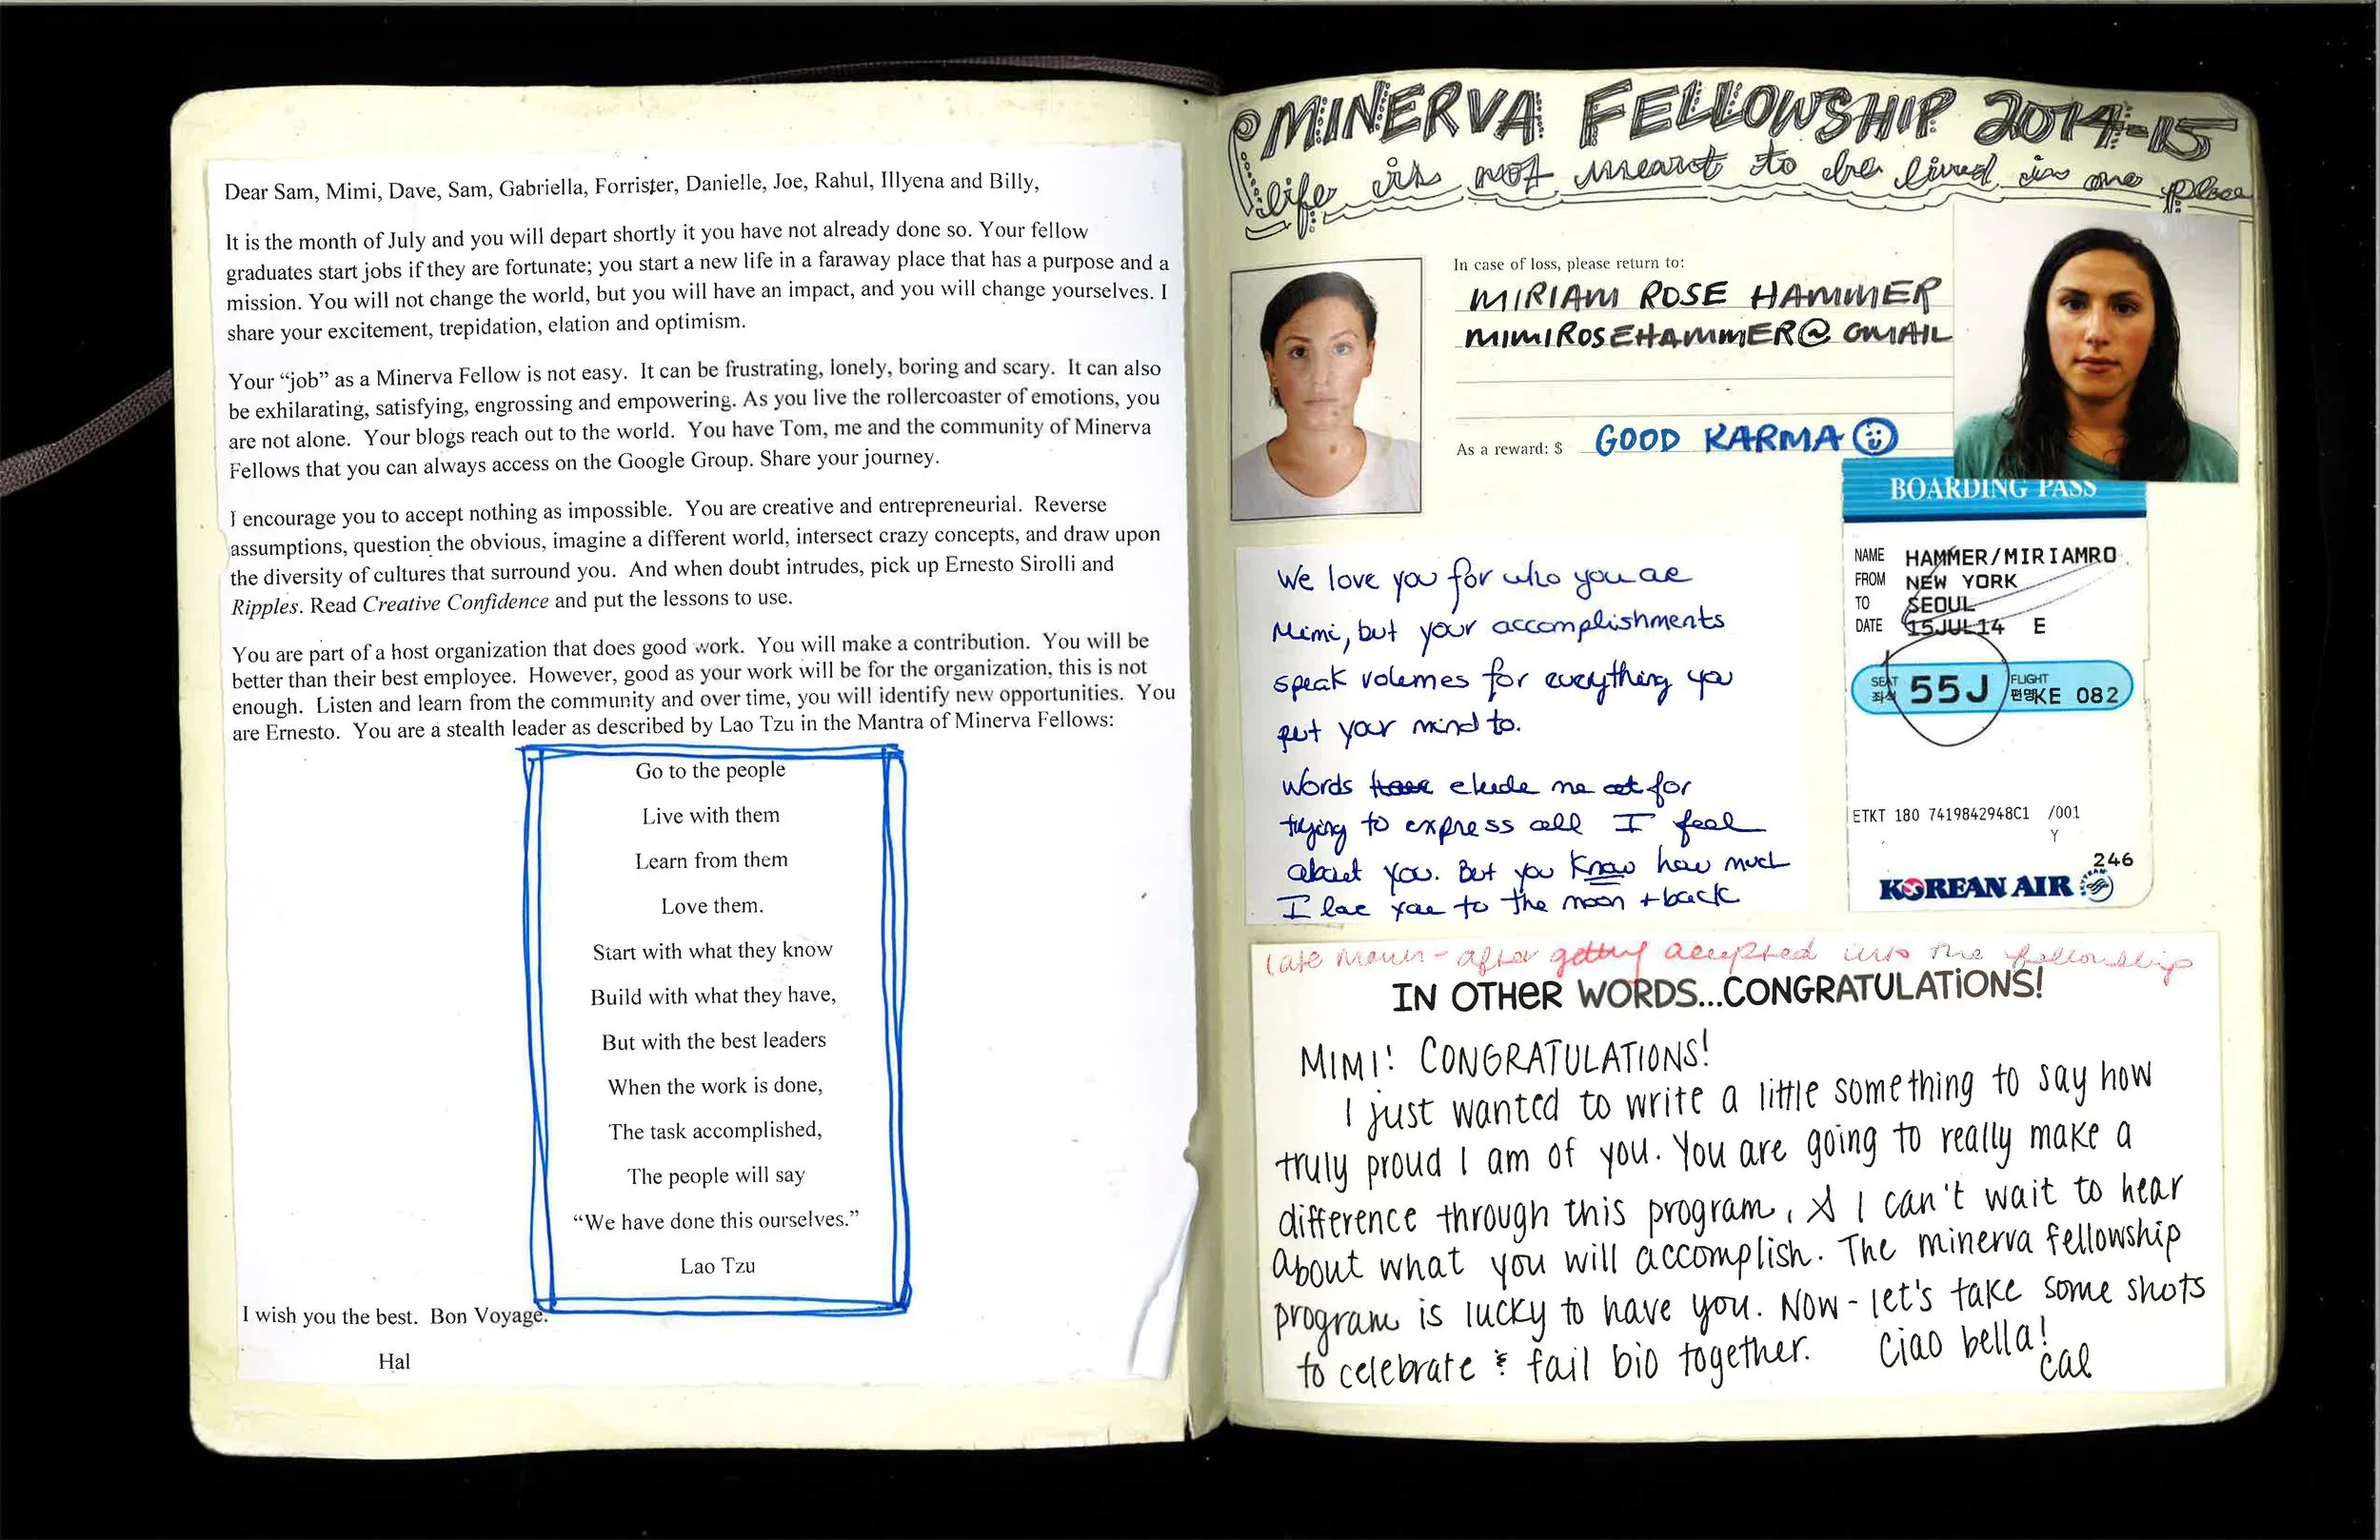 Dear Sam, Mimi, Dave, Sam, Gabriella, Forrister, Danielle, Joe, Rahul, Illyena and Billy,
It is the month of July and you will depart shortly it you have not already done so. Your fellow
graduates start jobs if they are fortunate; you start a new life in a faraway place that has a purpose and a
mission. You will not change the world, but you will have an impact, and you will change yourselves. I
share your excitement, trepidation, elation and optimism.
Your “job” as a Minerva Fellow is not easy. It can be frustrating, lonely, boring and scary. It can also
be exhilarating, satisfying, engrossing and empowering. As you live the rollercoaster of emotions, you
are not alone. Your blogs reach out to the world. You have Tom, me and the community of Minerva
Fellows that you can always access on the Google Group. Share your journey.
I encourage you to accept nothing as impossible. You are creative and entrepreneurial. Reverse
assumptions, question the obvious, imagine a different world, intersect crazy concepts, and draw upon
the diversity of cultures that surround you. And when doubt intrudes, pick up Ernesto Sirolli and
Ripples. Read Creative Confidence and put the lessons to use.
You are part of a host organization that does good work. You will make a contribution. You will be
better than their best employee. However, good as your work will be for the organization, this is not
enough. Listen and learn from the community and over time, you will identify new opportunities. You
are Ernesto. You are a stealth leader as described by Lao Tzu in the Mantra of Minerva Fellows:
Go to the people
Live with them
Learn from them
Love them.
Start with what they know
Build with what they have,
But with the best leaders
When the work is done,
The task accomplished,
The people will say
“We have done this ourselves.”
Lao Tzu
I wish you the best. Bon Voyage.
Hal
MINERVA FELLOWSHIP 2014-15
life is not meant to be lived in one place
In case of loss, please return to:
MIRIAM ROSE HAMMER
MIMIROSEHAMMER@GMAIL
As a reward: $ GOOD KARMA
We love you for who you ae
Mimi, but your accomplishments
speak volemes for everything you
put your mind to.
Words elude me for
trying to express all I feel
about you. But you know how much
I love you to the moon + back
BOARDING PASS
NAME HAMMER/MIRIAMRO
FROM NEW YORK
TO SEOUL
DATE 15JUL14 E
SEAT 좌석 55J FLIGHT 편명 KE 082
ETKT 180 7419842948C1 /001
Y
246
KOREAN AIR
late March - after getting accepted into the fellowship
IN OTHER WORDS...CONGRATULATIONS!
MIMI! CONGRATULATIONS!
I just wanted to write a little something to say how
truly proud I am of you. You are going to really make a
difference through this program, & I can't wait to hear
about what you will accomplish. The minerva fellowship
program is lucky to have you. Now - let's take some shots
to celebrate & fail bio together. Ciao bella!
cal